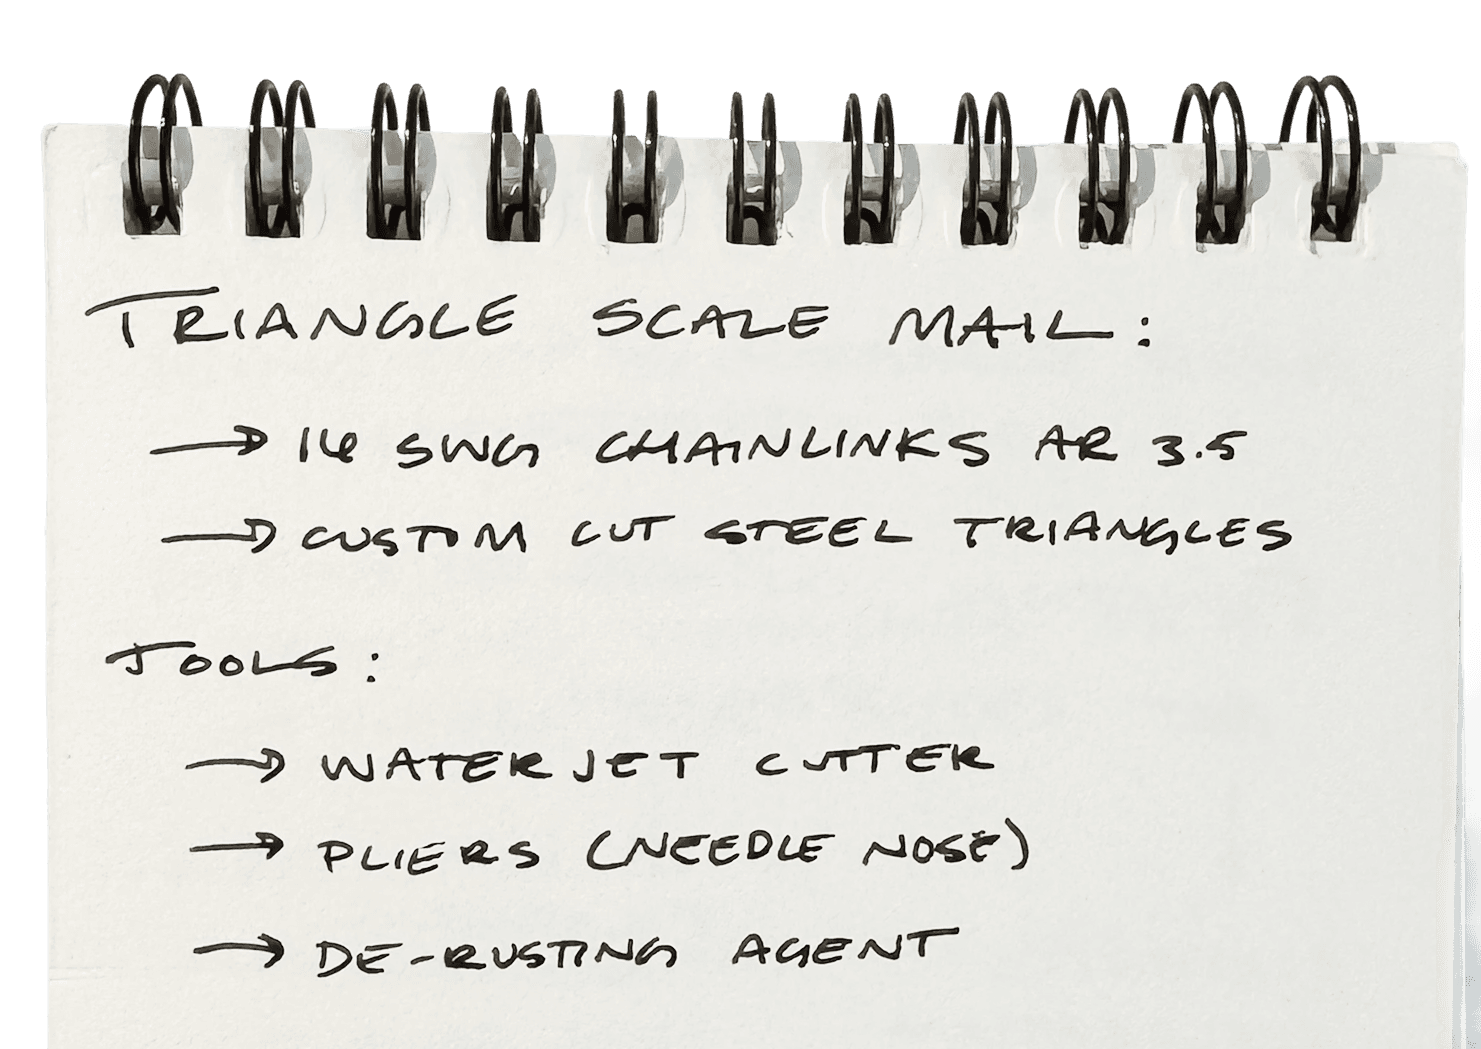 TRIANGLE SCALE MAIL:
→ 16 SWG CHAINLINKS AR 3.5
→ CUSTOM CUT STEEL TRIANGLES
TOOLS:
→ WATERJET CUTTER
→ PLIERS (NEEDLE NOSE)
→ DE-RUSTING AGENT